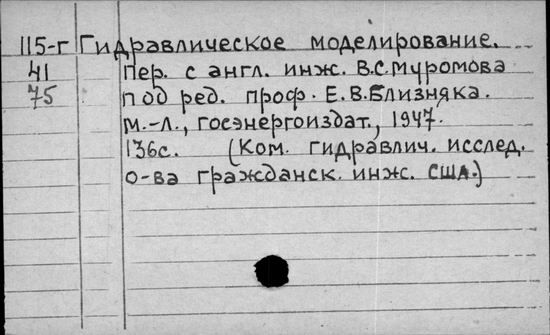 115-г Гидравлическое моделирование.
41 Пер. с англ. инж. В.С.Муромова
75 под ред. проф. Е.В.Близняка.
М.-Л., Госэнергоиздат, 1947.
136с. (Ком. гидравлич. исслед.
о-ва гражданск. инж. США.)